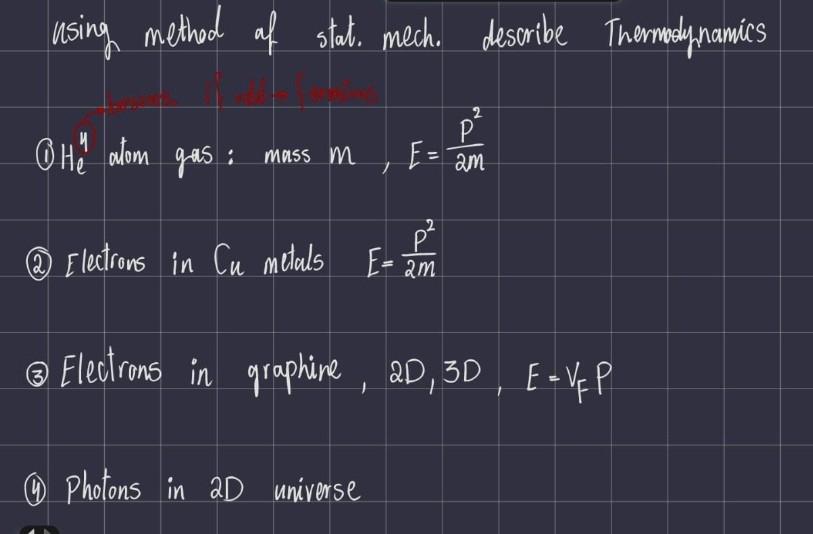 using method of stat. mech. describe Thermodynamics
bosons if odd → fermions
① He⁴ atom gas : mass m , E = P²/2m
② Electrons in Cu metals E = P²/2m
③ Electrons in graphine , 2D, 3D , E = V_F P
④ Photons in 2D universe